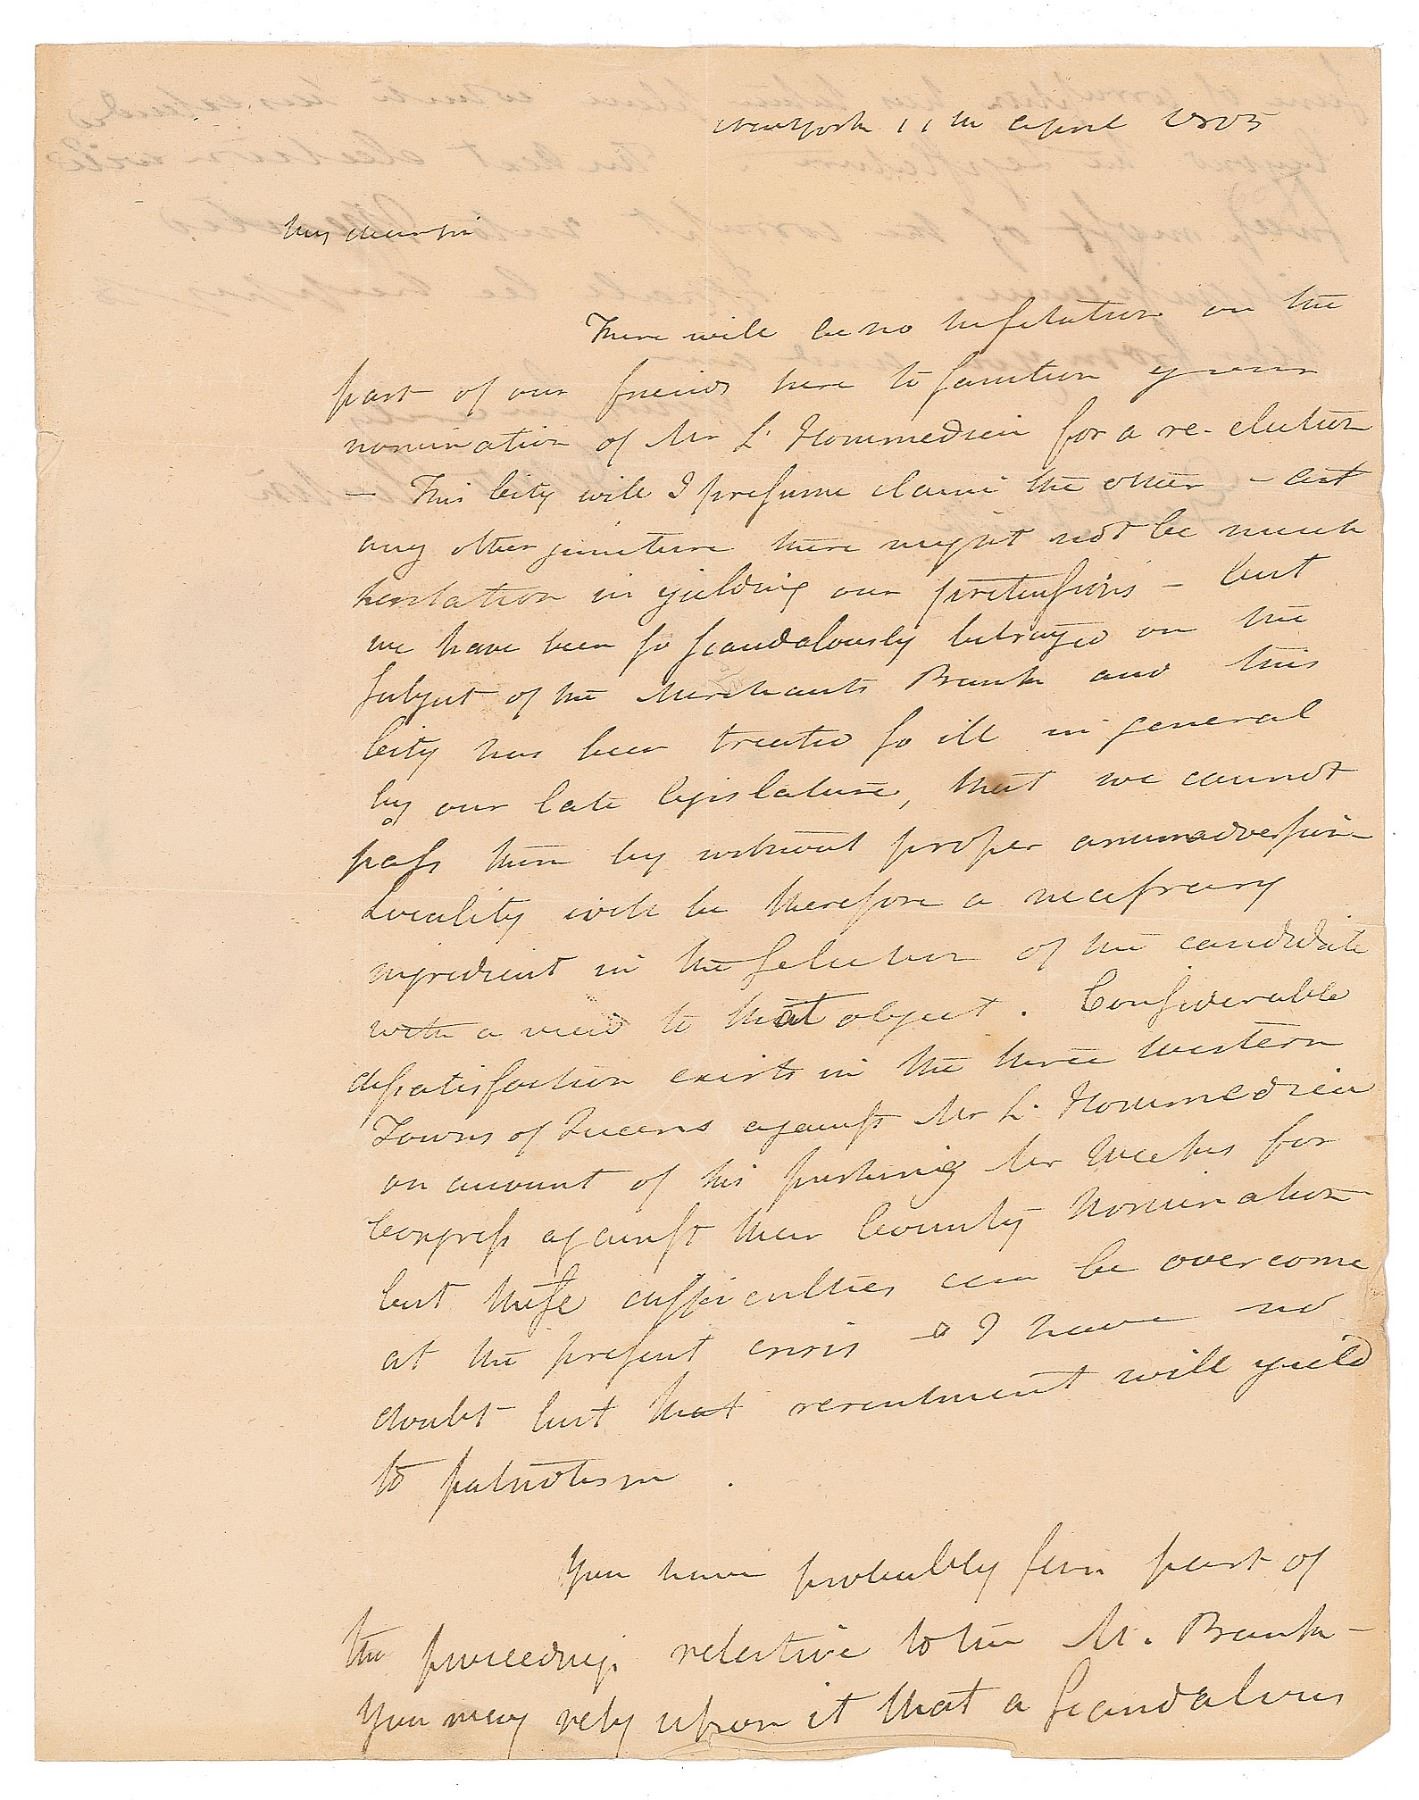 New York 11th April 1805
My dear sir
There will be no hesitation on the
part of our friends here to sanction your
nomination of Mr L'Hommedieu for a re-election
– This City will I presume claim the other – at
any other juncture there might not be much
hesitation in yielding our pretensions – but
we have been so scandalously betrayed on the
subject of the Merchants Bank and this
City has been treated so ill in general
by our late legislature, that we cannot
pass them by without proper animadversion
Locality will be therefore a necessary
ingredient in the selection of the candidate
with a view to that object. Considerable
dissatisfaction exists in the three western
Towns of Queens against Mr L'Hommedieu
on account of his pushing Mr Weekes for
Congress against their County Nomination
but these difficulties can be overcome
at the present crisis & I have no
doubt but that resentment will yield
to patriotism.
You have probably seen part of
the proceedings relative to the M. Bank –
You may rely upon it that a scandalous